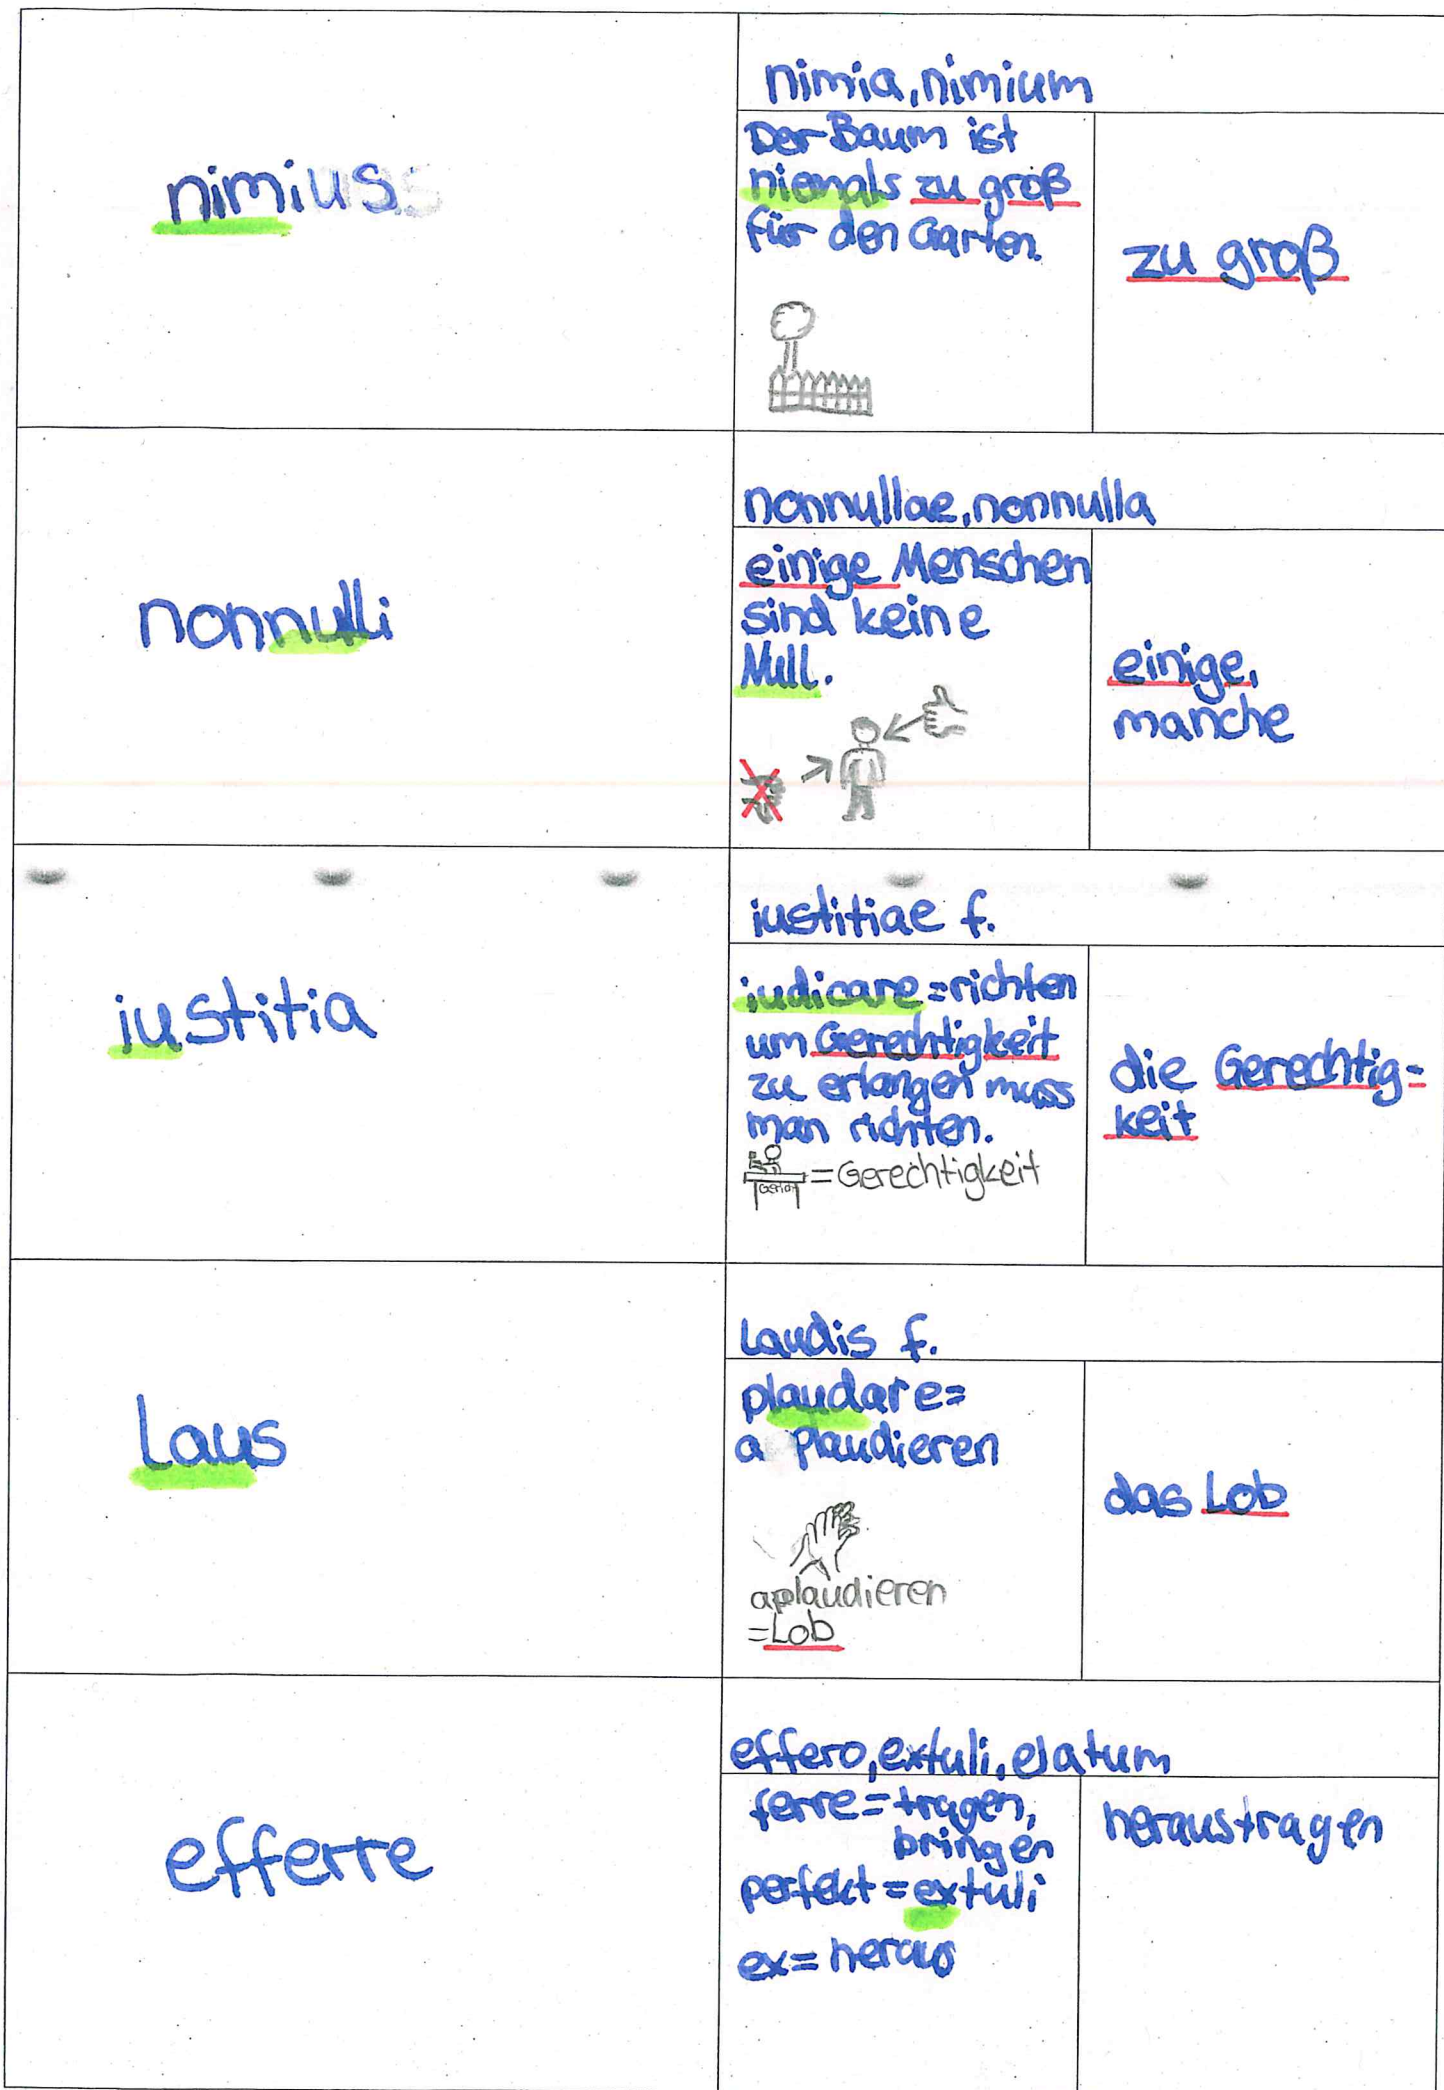 nimius
nimia, nimium
Der Baum ist
niemals zu groß
für den Garten.
zu groß
nonnulli
nonnullae, nonnulla
einige Menschen
sind keine
Null.
einige,
manche
iustitia
iustitiae f.
iudicare = richten
um Gerechtigkeit
zu erlangen muss
man richten.
= Gerechtigkeit
die Gerechtig-
keit
Laus
Laudis f.
plaudare =
a plaudieren
aplaudieren
= Lob
das Lob
efferre
effero, extuli, elatum
ferre = tragen,
bringen
perfekt = extuli
ex = heraus
heraustragen